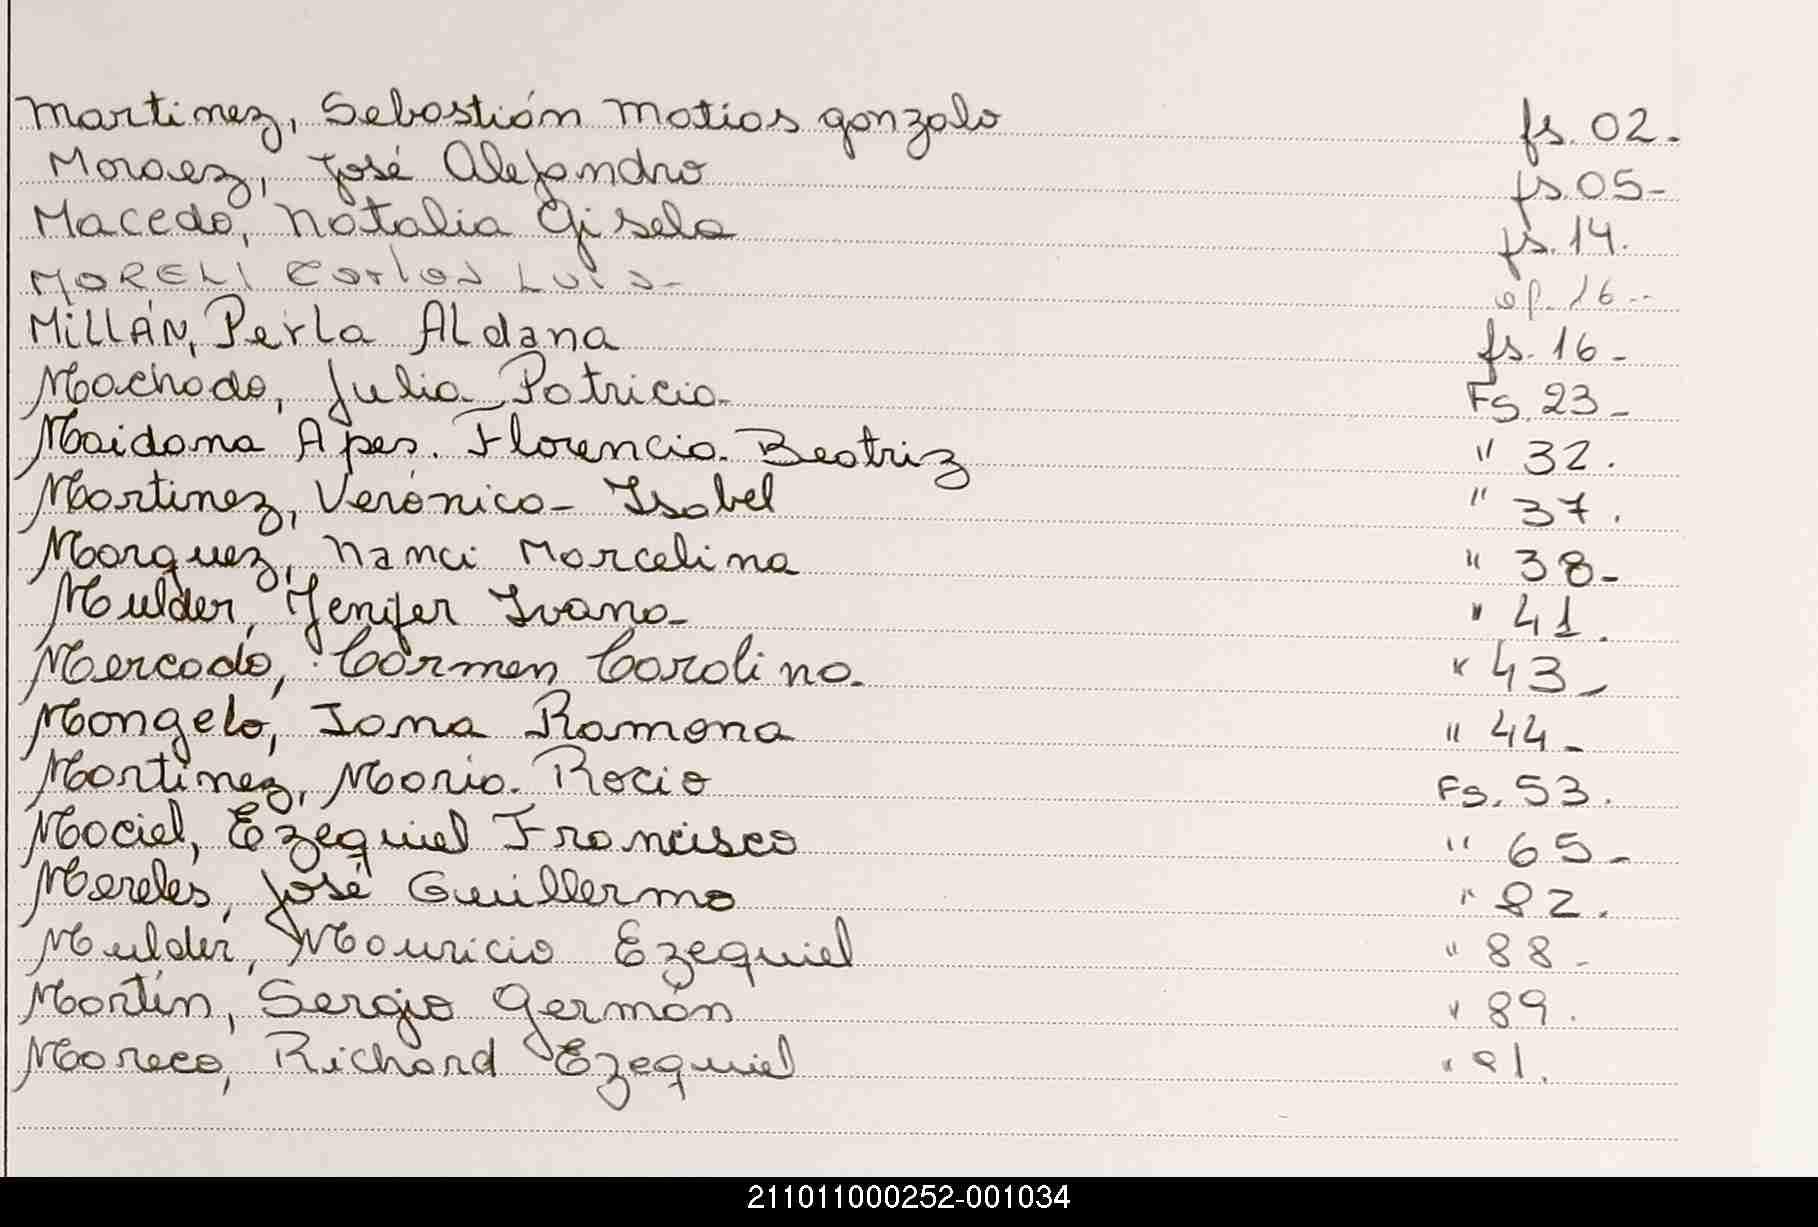 Martinez, Sebastián Matias gonzalo fs. 02.
Moraez, José Alejandro fs. 05-
Macedo, Natalia Gisela fs. 14.
MORELI Carlos Luis- of. 16-
MiLLÁN, Perla ALdana fs. 16-
Machado, Julia Patricia. Fs. 23-
Maidana Apes. Florencia. Beatriz " 32.
Martinez, Verónica- Isabel " 37.
Marquez, Nanci Marcelina " 38-
Mulder, Jenifer Ivana- " 41.
Mercado, Carmen Carolina. " 43-
Mongelo, Iana Ramona " 44-
Martinez, Maria. Rocio Fs. 53.
Maciel, Ezequiel Francisco " 65-
Mereles, José Guillermo " 82.
Mulder, Mauricio Ezequiel " 88-
Martín, Sergio Germán " 89.
Mareco, Richard Ezequiel " 91.
211011000252-001034